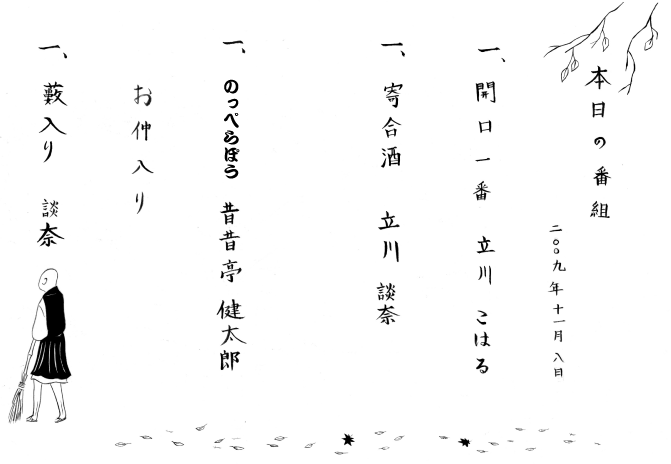 本日の番組
二〇〇九年十一月八日
一、開口一番 立川 こはる
一、寄合酒 立川 談奈
一、のっぺらぼう 昔昔亭 健太郎
お仲入り
一、藪入り 談奈